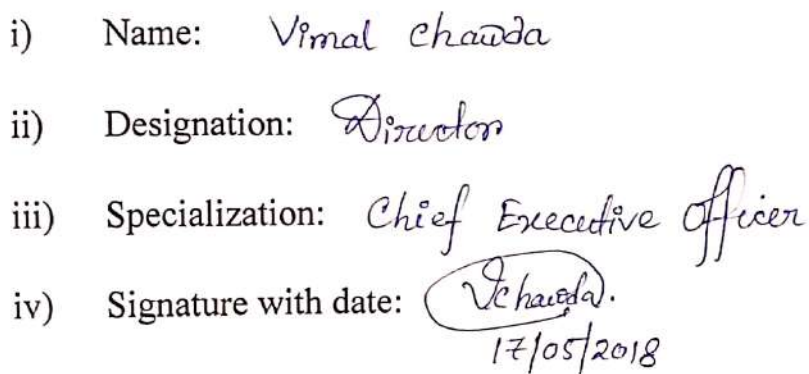 i) Name: Vimal Chawda
ii) Designation: Director
iii) Specialization: Chief Executive Officer
iv) Signature with date: Vchawda.
17/05/2018